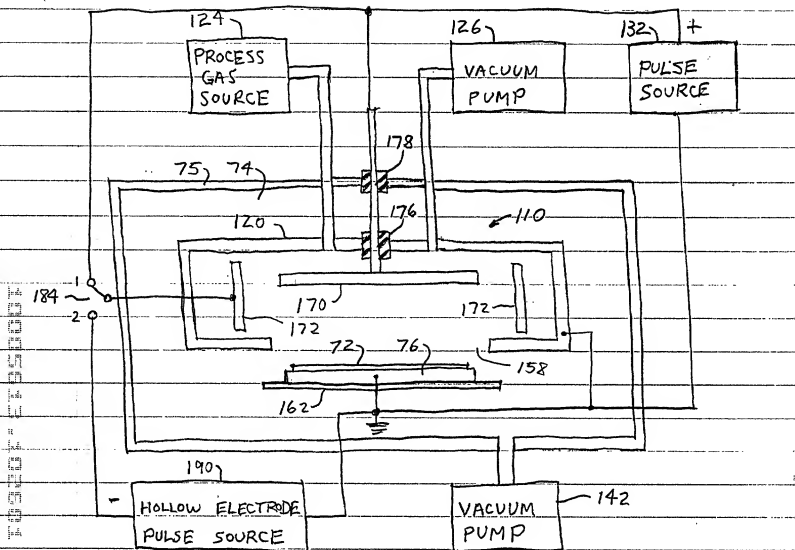 124
126
132
+
PROCESS
GAS
SOURCE
VACUUM
PUMP
PULSE
SOURCE
178
75
74
176
120
110
1
184
2
170
172
172
72
76
158
162
190
-
HOLLOW ELECTRODE
PULSE SOURCE
VACUUM
PUMP
142